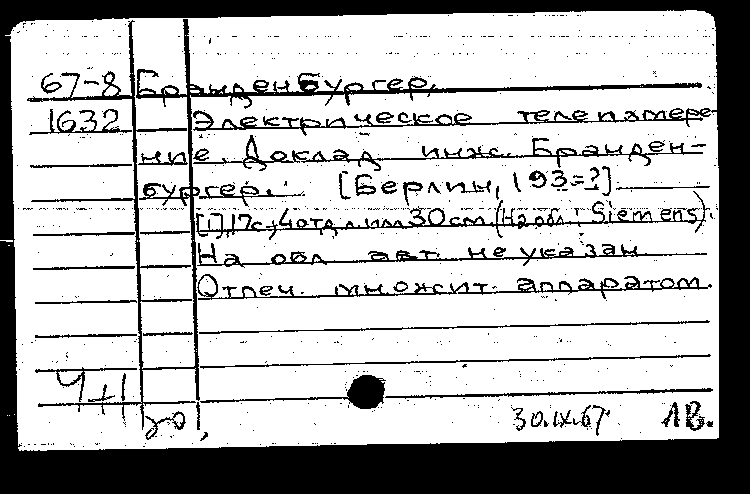 67-8 Бранденбургер,
1632 Электрическое телеизмере-
ние. Доклад инж. Бранден-
бургер. [Берлин, 193=?]
[1], 17с., 4 отд.л.илл. 30см. (На обл.: Siemens).
На обл авт. не указан
Отпеч. множит. аппаратом.
Ч+1
30.IX.67 ЛВ.